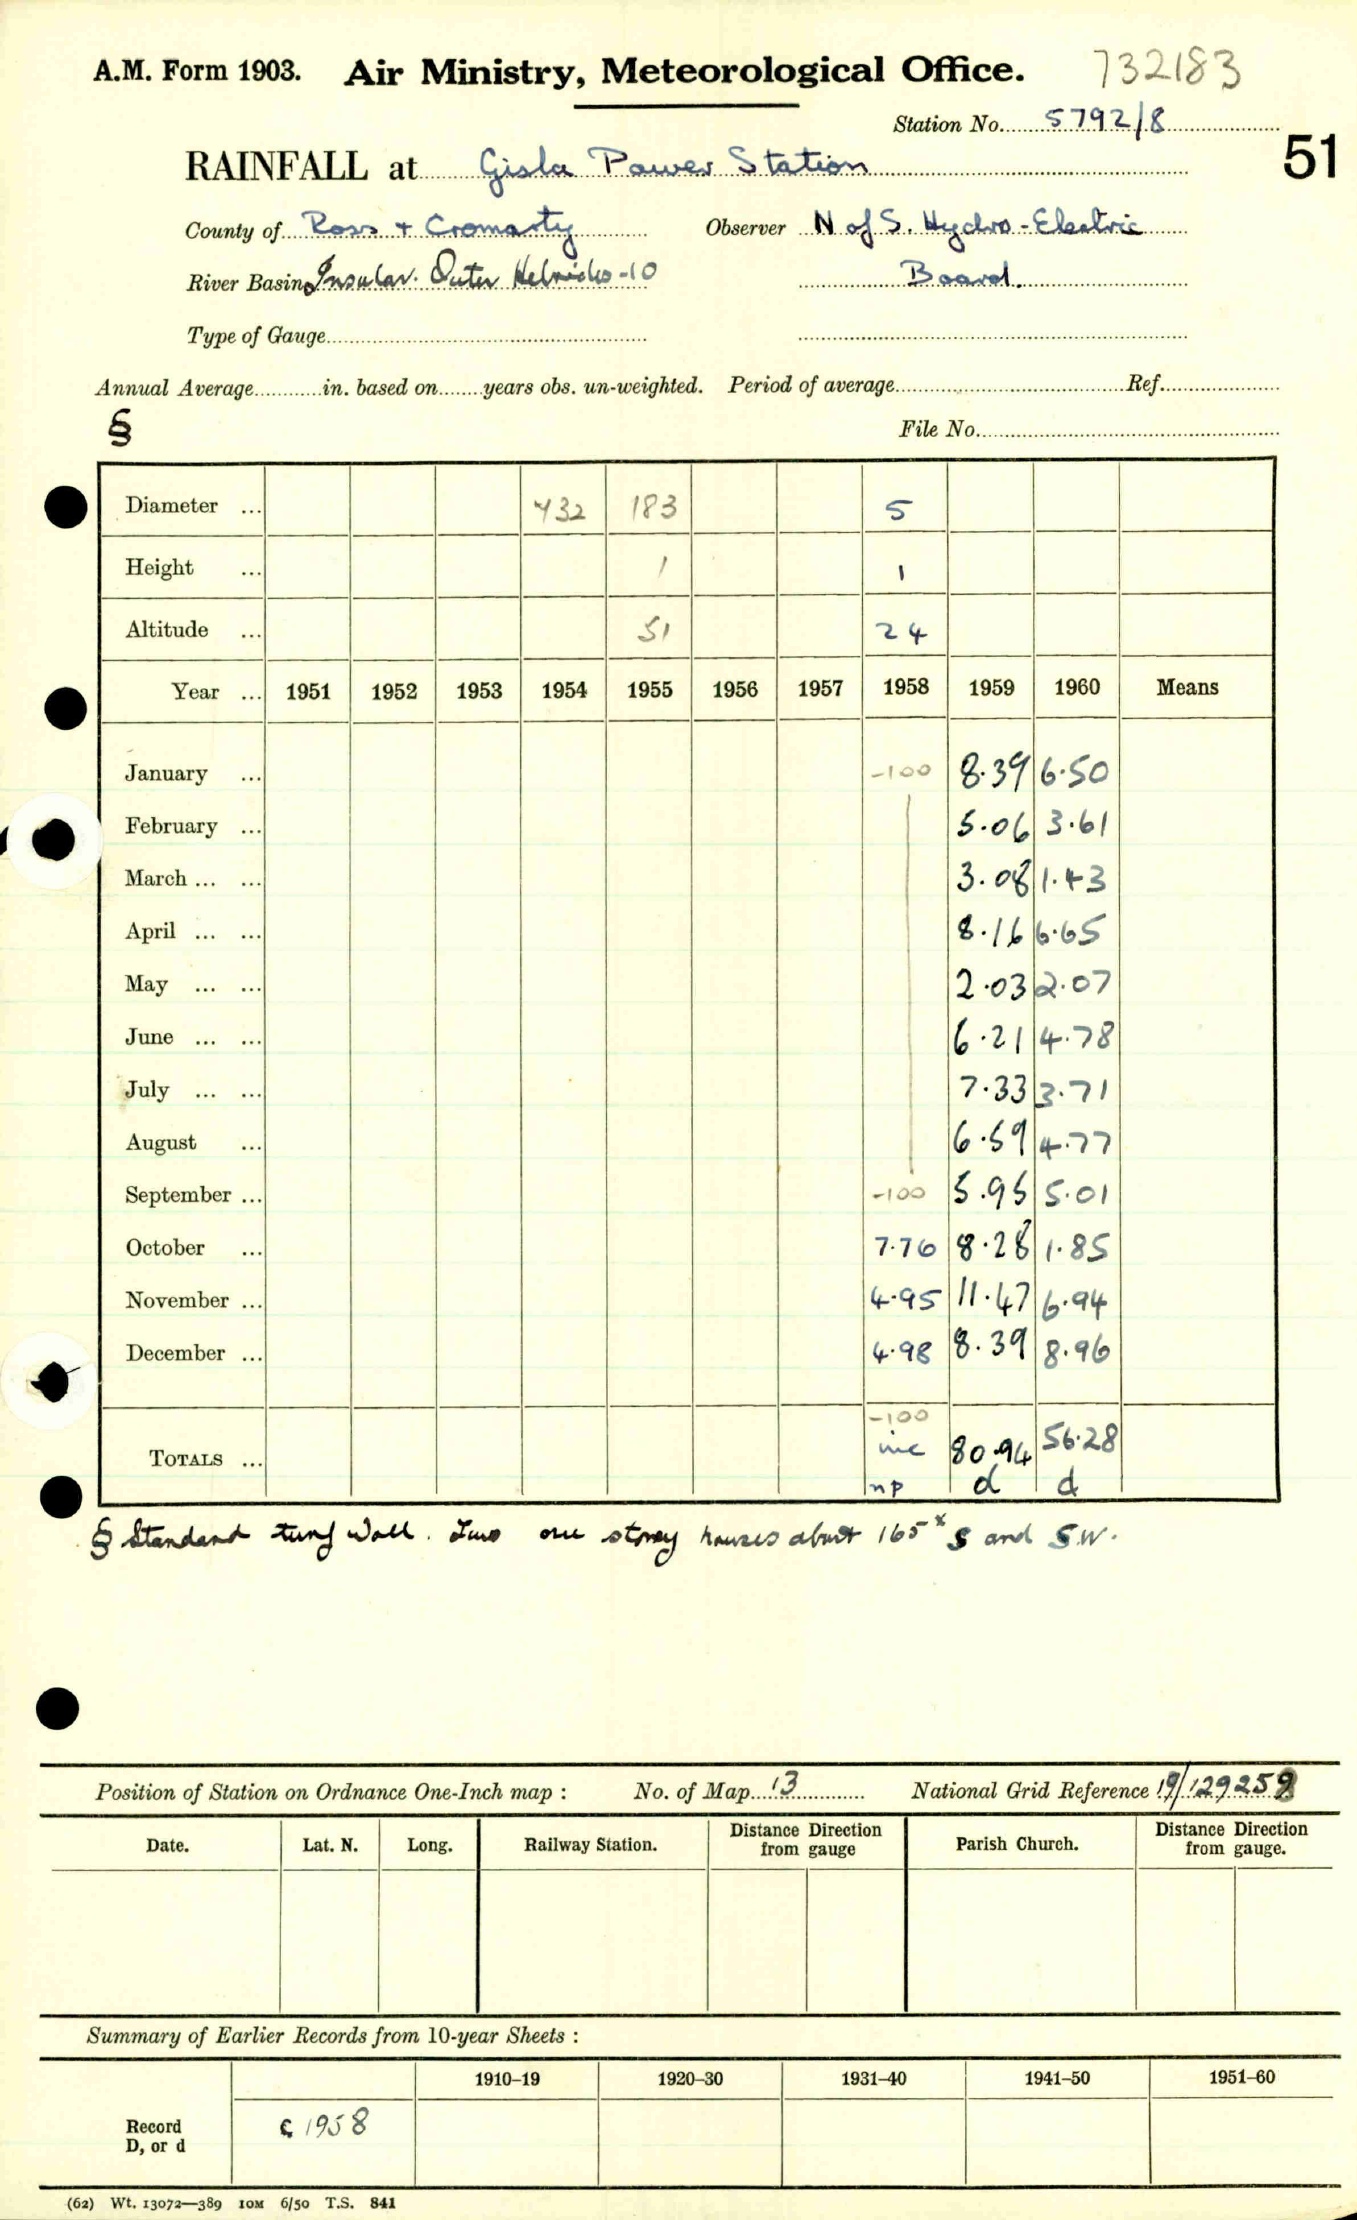 A.M. Form 1903. Air Ministry, Meteorological Office. 732183
Station No. 5792/8
51
RAINFALL at Gisla Power Station
County of Ross + Cromarty Observer N of S. Hydro-Electric
River Basin Insular. Outer Hebrides-10 Board.
Type of Gauge
Annual Average in. based on years obs. un-weighted. Period of average Ref.
§ File No.
Diameter ... 732 183 5
Height ... 1 1
Altitude ... 51 24
Year ... 1951 1952 1953 1954 1955 1956 1957 1958 1959 1960 Means
January ... -100 8.39 6.50
February ... 5.06 3.61
March ... ... 3.08 1.43
April ... ... 8.16 6.65
May ... ... 2.03 2.07
June ... ... 6.21 4.78
July ... ... 7.33 3.71
August ... 6.59 4.77
September ... -100 5.95 5.01
October ... 7.76 8.28 1.85
November ... 4.95 11.47 6.94
December ... 4.98 8.39 8.96
-100
TOTALS ... inc 80.94 56.28
np d d
§ Standard turf wall. Two one storey houses about 165ˣ S and SW.
Position of Station on Ordnance One-Inch map : No. of Map 13 National Grid Reference 19/129258
Date. Lat. N. Long. Railway Station. Distance from gauge Direction Parish Church. Distance from gauge. Direction
Summary of Earlier Records from 10-year Sheets :
1910–19 1920–30 1931–40 1941–50 1951–60
Record
D, or d
c 1958
(62) Wt. 13072—389 10M 6/50 T.S. 841